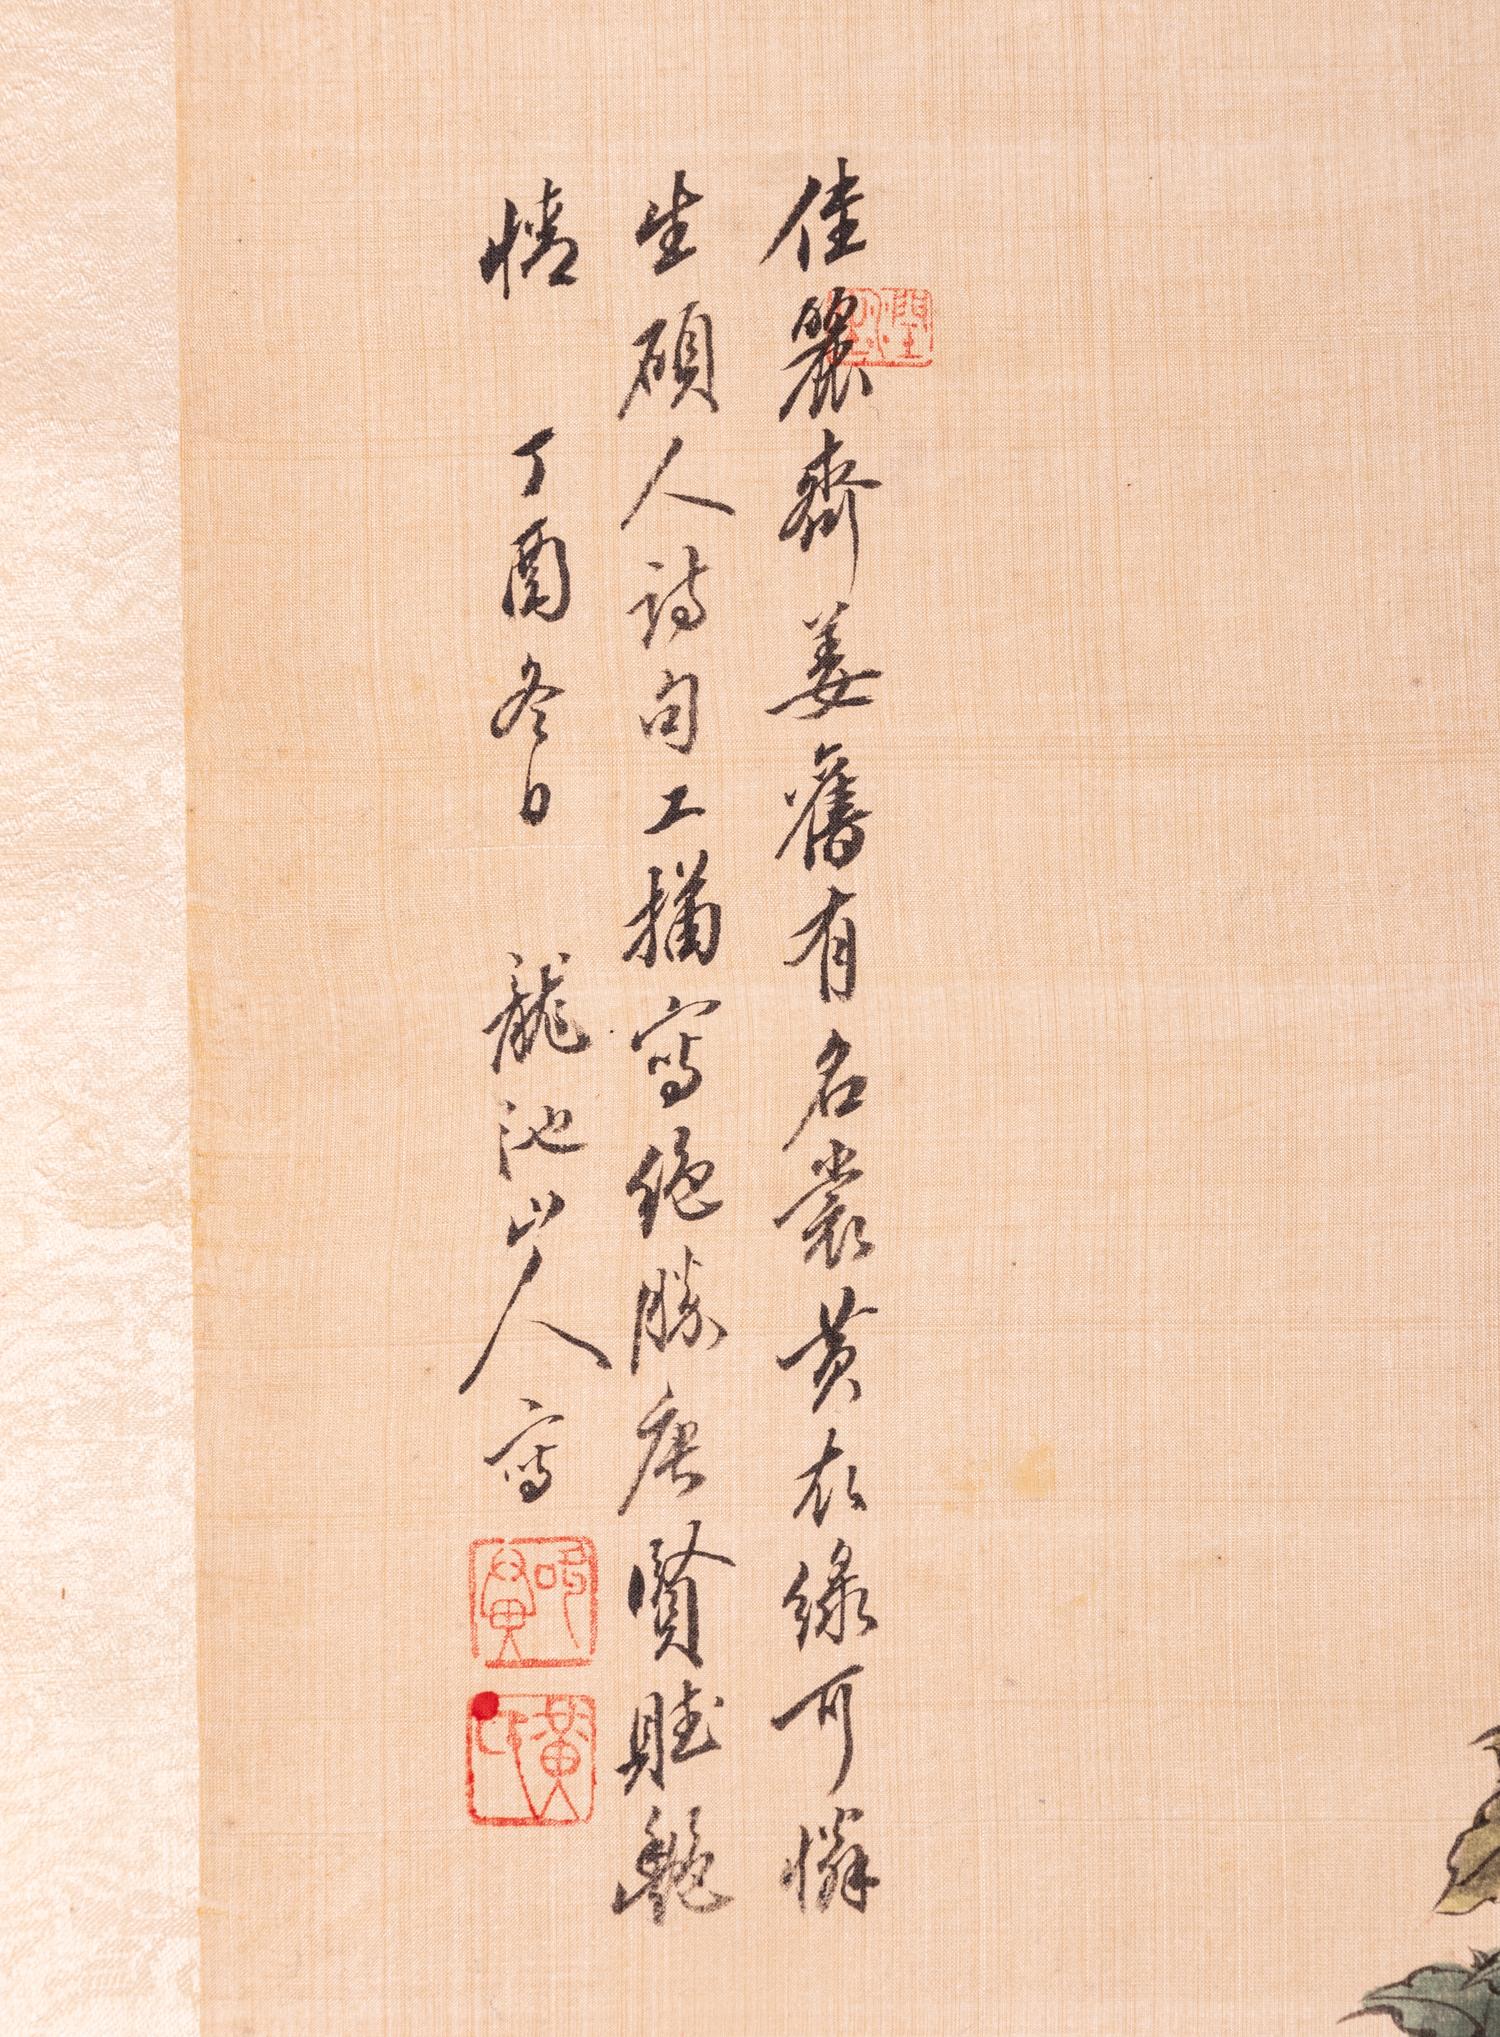 佳麗齊姜舊有名裳黄衣綠可憐
生碩人詩句工描寫絕勝唐賢賦艷
情 丁酉冬日 龍池山人寫
黃